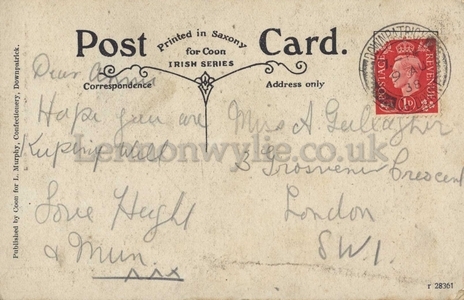 Post Card.
Printed in Saxony
for Coon
IRISH SERIES
Correspondence
Address only
Published by Coon for L. Murphy, Confectionery, Downpatrick.
POSTAGE
REVENUE
DOWNPATRICK
Dear Annie
Hope you are
Keeping Well
Love Hugh
& Mum.
xxx
Miss A Gallagher
3 Grosvenor Crescent
London
SW1.
Lennonwylie.co.uk
r 28361